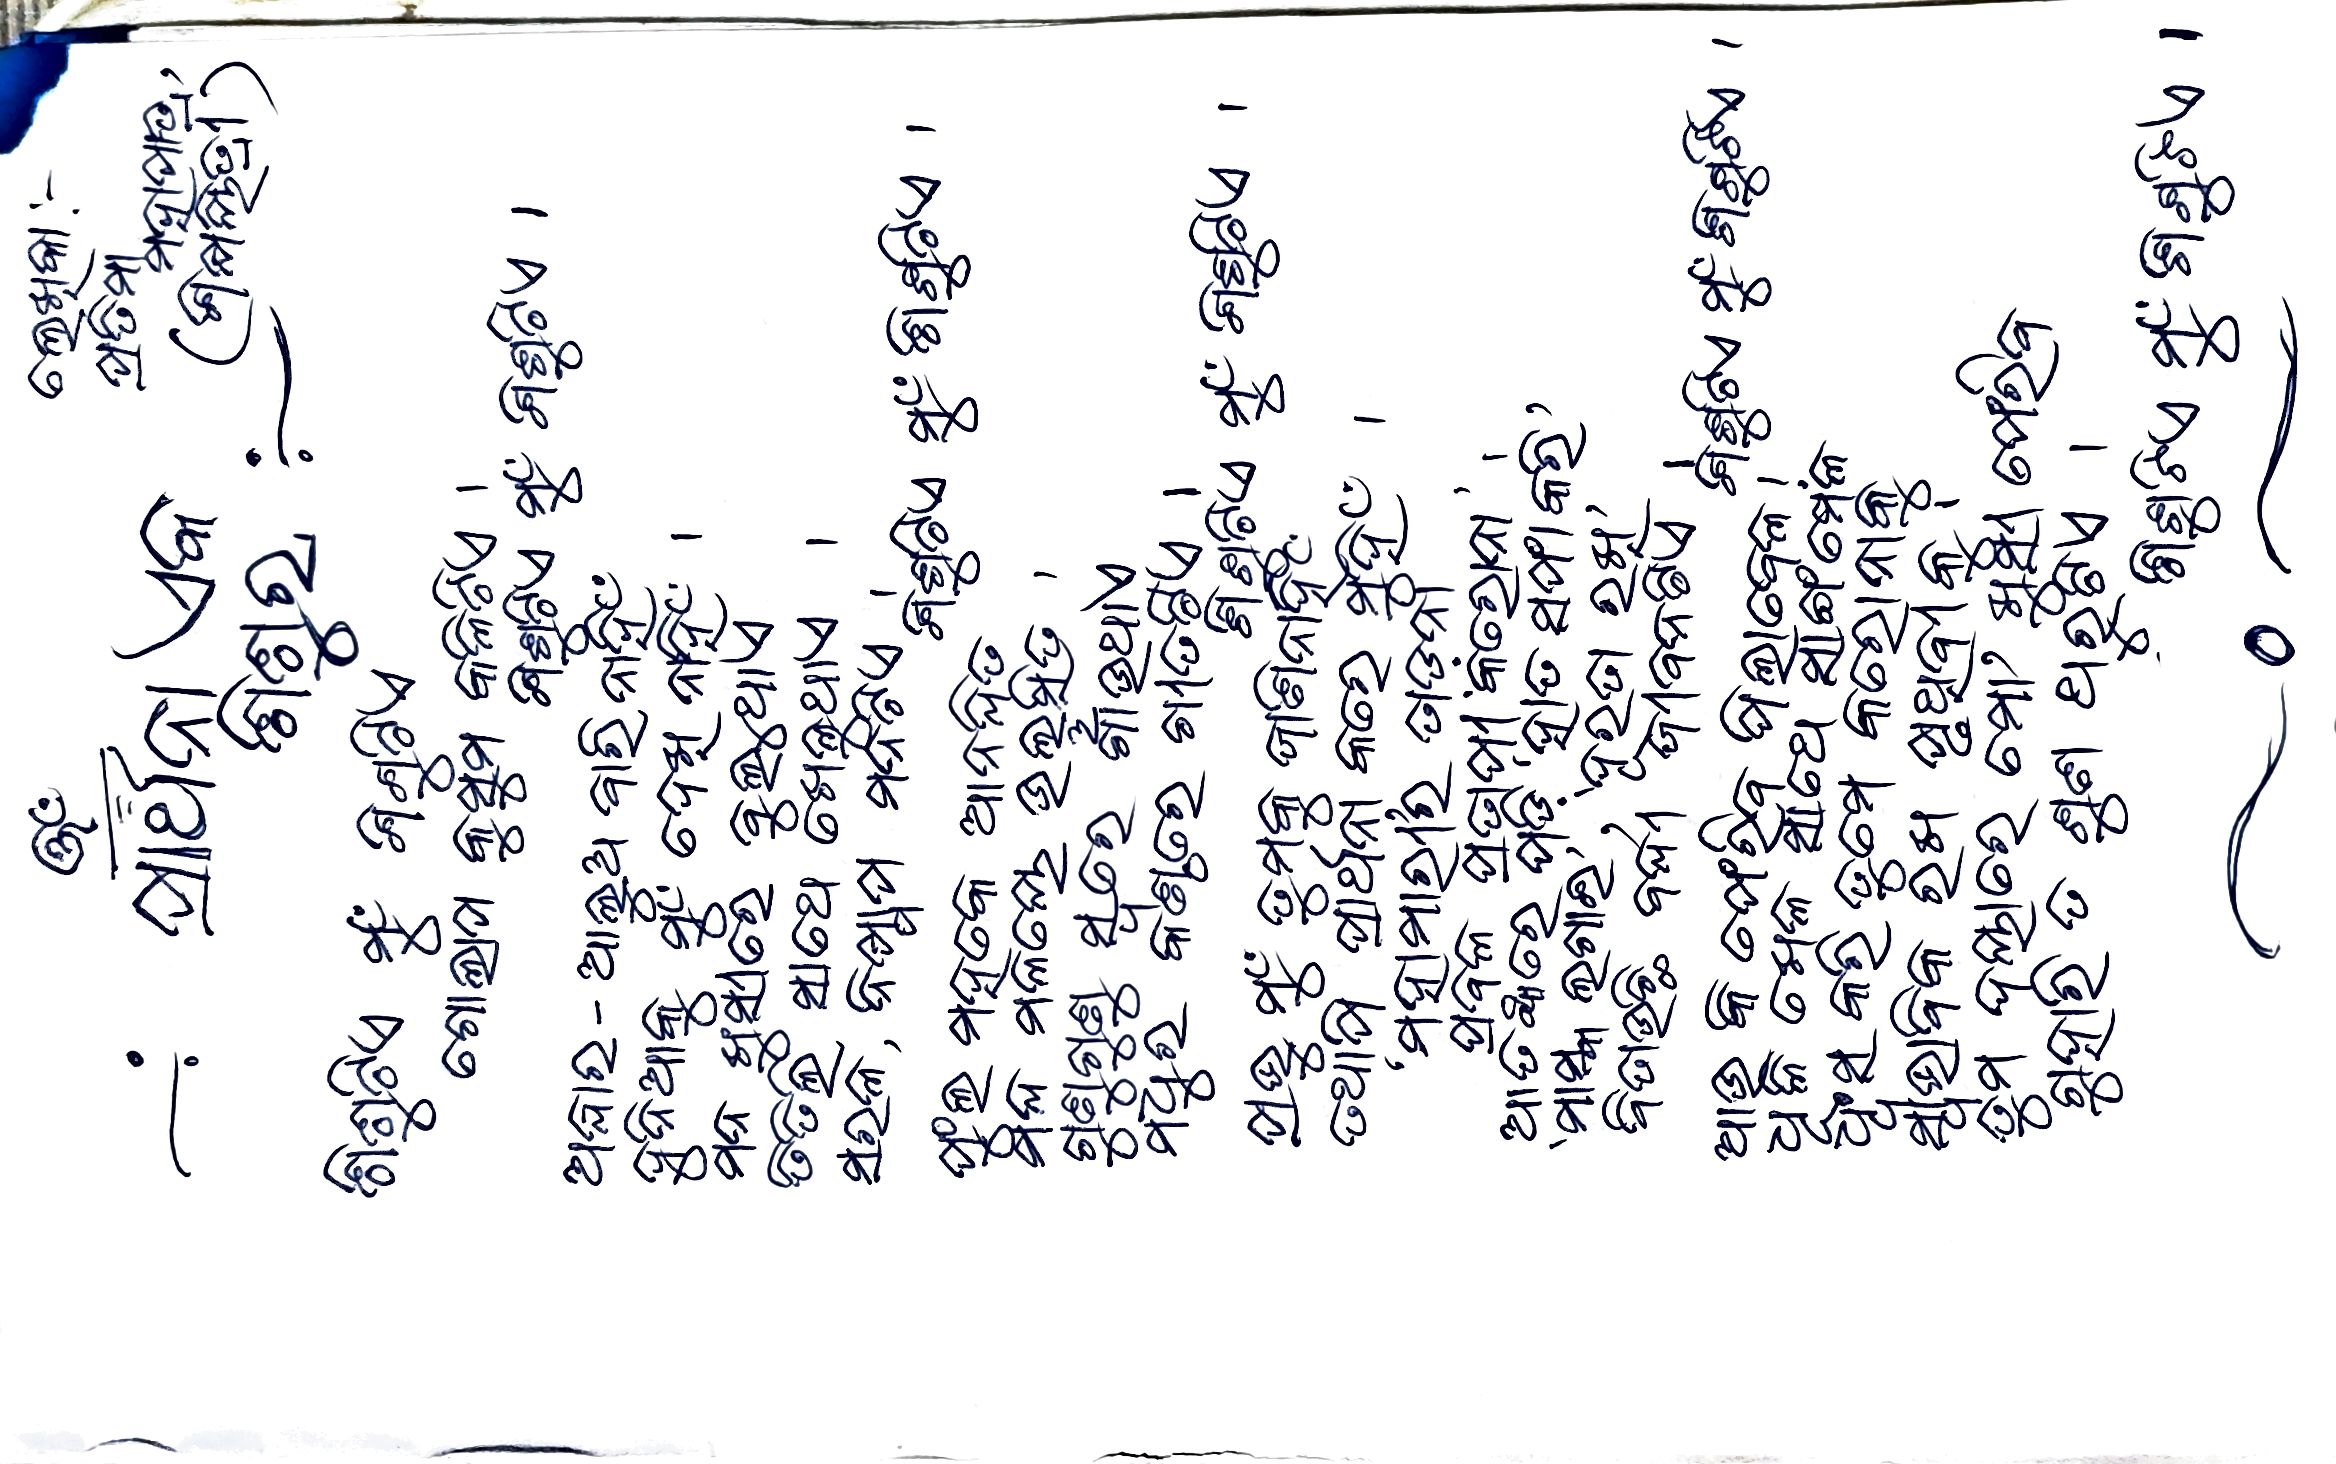 ଓଁ
ଲେଖିକା :-
ପ୍ରତିମା
ମହାପାତ୍ର,
(ଶିକ୍ଷୟିତ୍ରୀ)
-: ପ୍ରାର୍ଥନା ଏକ
ଶିଶୁର :-
ଶିଶୁଟିଏ ମୁଁ ଶିଶୁଟିଏ
ଗୋଲାପ କୁସୁମ କଳିଟିଏ ।
ଶିଶୁଟିଏ ମୁଁ ଶିଶୁଟିଏ ।
ଅନ୍ଧାର - ଆଲୁଅ ବାରି ନାହିଁ
ଦୁନିଆକୁ ମୁଁ ଦେଖି ନାହିଁ ।
ମନ ଖୁସୀରେ ବୁଲୁଥାଏ
ତିତିଲି ସାଥେ ଖେଳୁଥାଏ ।
ସରଳ, ନିଷ୍ପାପ ମନଟିଏ ।
ଶିଶୁଟିଏ ମୁଁ ଶିଶୁଟିଏ ।
ଫୁଲ ମହକେ ଆନନ୍ଦିତ
ମଳୟ ଉଲ୍ଲସିତ ।
ଗୁଣୁଗୁଣୁ ସ୍ୱରେ ଗାଁଉଥାଏ
ମଧୁର କଣ୍ଠରେ ଗୀତଟିଏ ।
ଶିଶୁଟିଏ ମୁଁ ଶିଶୁଟିଏ ।
ପ୍ରଭୁ ମୁଁ ତୁମକୁ ଜାଣିନାହିଁ
ତଥାପି ପ୍ରାର୍ଥନା କରେ ମୁହିଁ ।
'ମହାମାରୀ'ର ତାଡ଼ନା
ପ୍ରବଳ ପ୍ରତାପୀ 'କରୋନା' ।
ଆତଙ୍କରେ ପଡ଼ି 'ହାତ ସଫା କରି'
'ମାସ୍କ ଲଗାଇ', 'ଦୂରତା ରଖି'
ବିତାଉଛି ବନ୍ଦୀ ଜୀବନଟିଏ ।
ଶିଶୁଟିଏ ମୁଁ ଶିଶୁଟିଏ ।
ଆଉ କି ଫେରିବ ପିଲାବେଳ !
ଧୂଳି ଖେଳ ସାଥେ ସାଙ୍ଗ ମେଳ
ଧ୍ୱଂସ କରି ତୁମେ କରୋନାକୁ
ସ୍ୱାଭାବିକ ରଖ ପୃଥିବୀକୁ ।
ତୁମ ଦୟାରେ ମୋ' ଖୁସୀ ଫେରିବ
ଗୁହାରି ତ ଶୁଣ ଥରୁଟିଏ ।
ଶିଶୁଟିଏ ମୁଁ ଶିଶୁଟିଏ ।